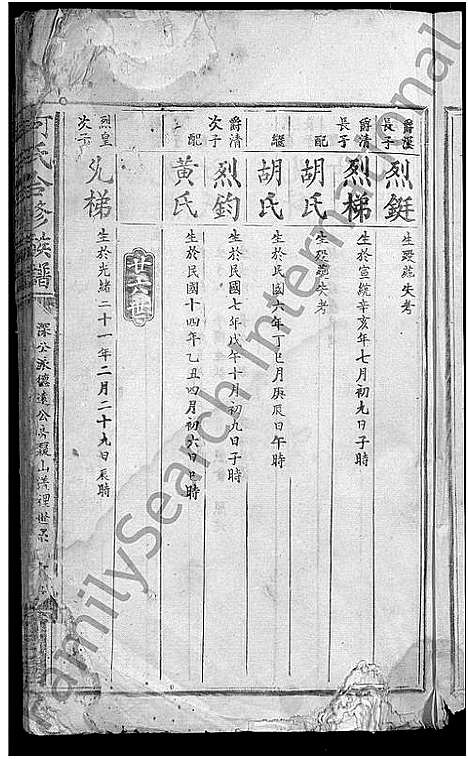 爵溪長子 烈鋌 生歿葬失考
爵清長子 烈梯 生於宣統辛亥年七月初九日子時
配 胡氏 生歿葬失考
繼 胡氏 生於民國六年丁巳月庚辰日午時
爵清次子 烈鈞 生於民國七年戊午十月初九日子時
配 黃氏 生於民國十四年乙丑四月初六日巳時
廿六世
烈皇次子 光梯 生於光緒二十一年二月二十九日辰時
何氏合修族譜
深公派德遠公房
FamilySearch International